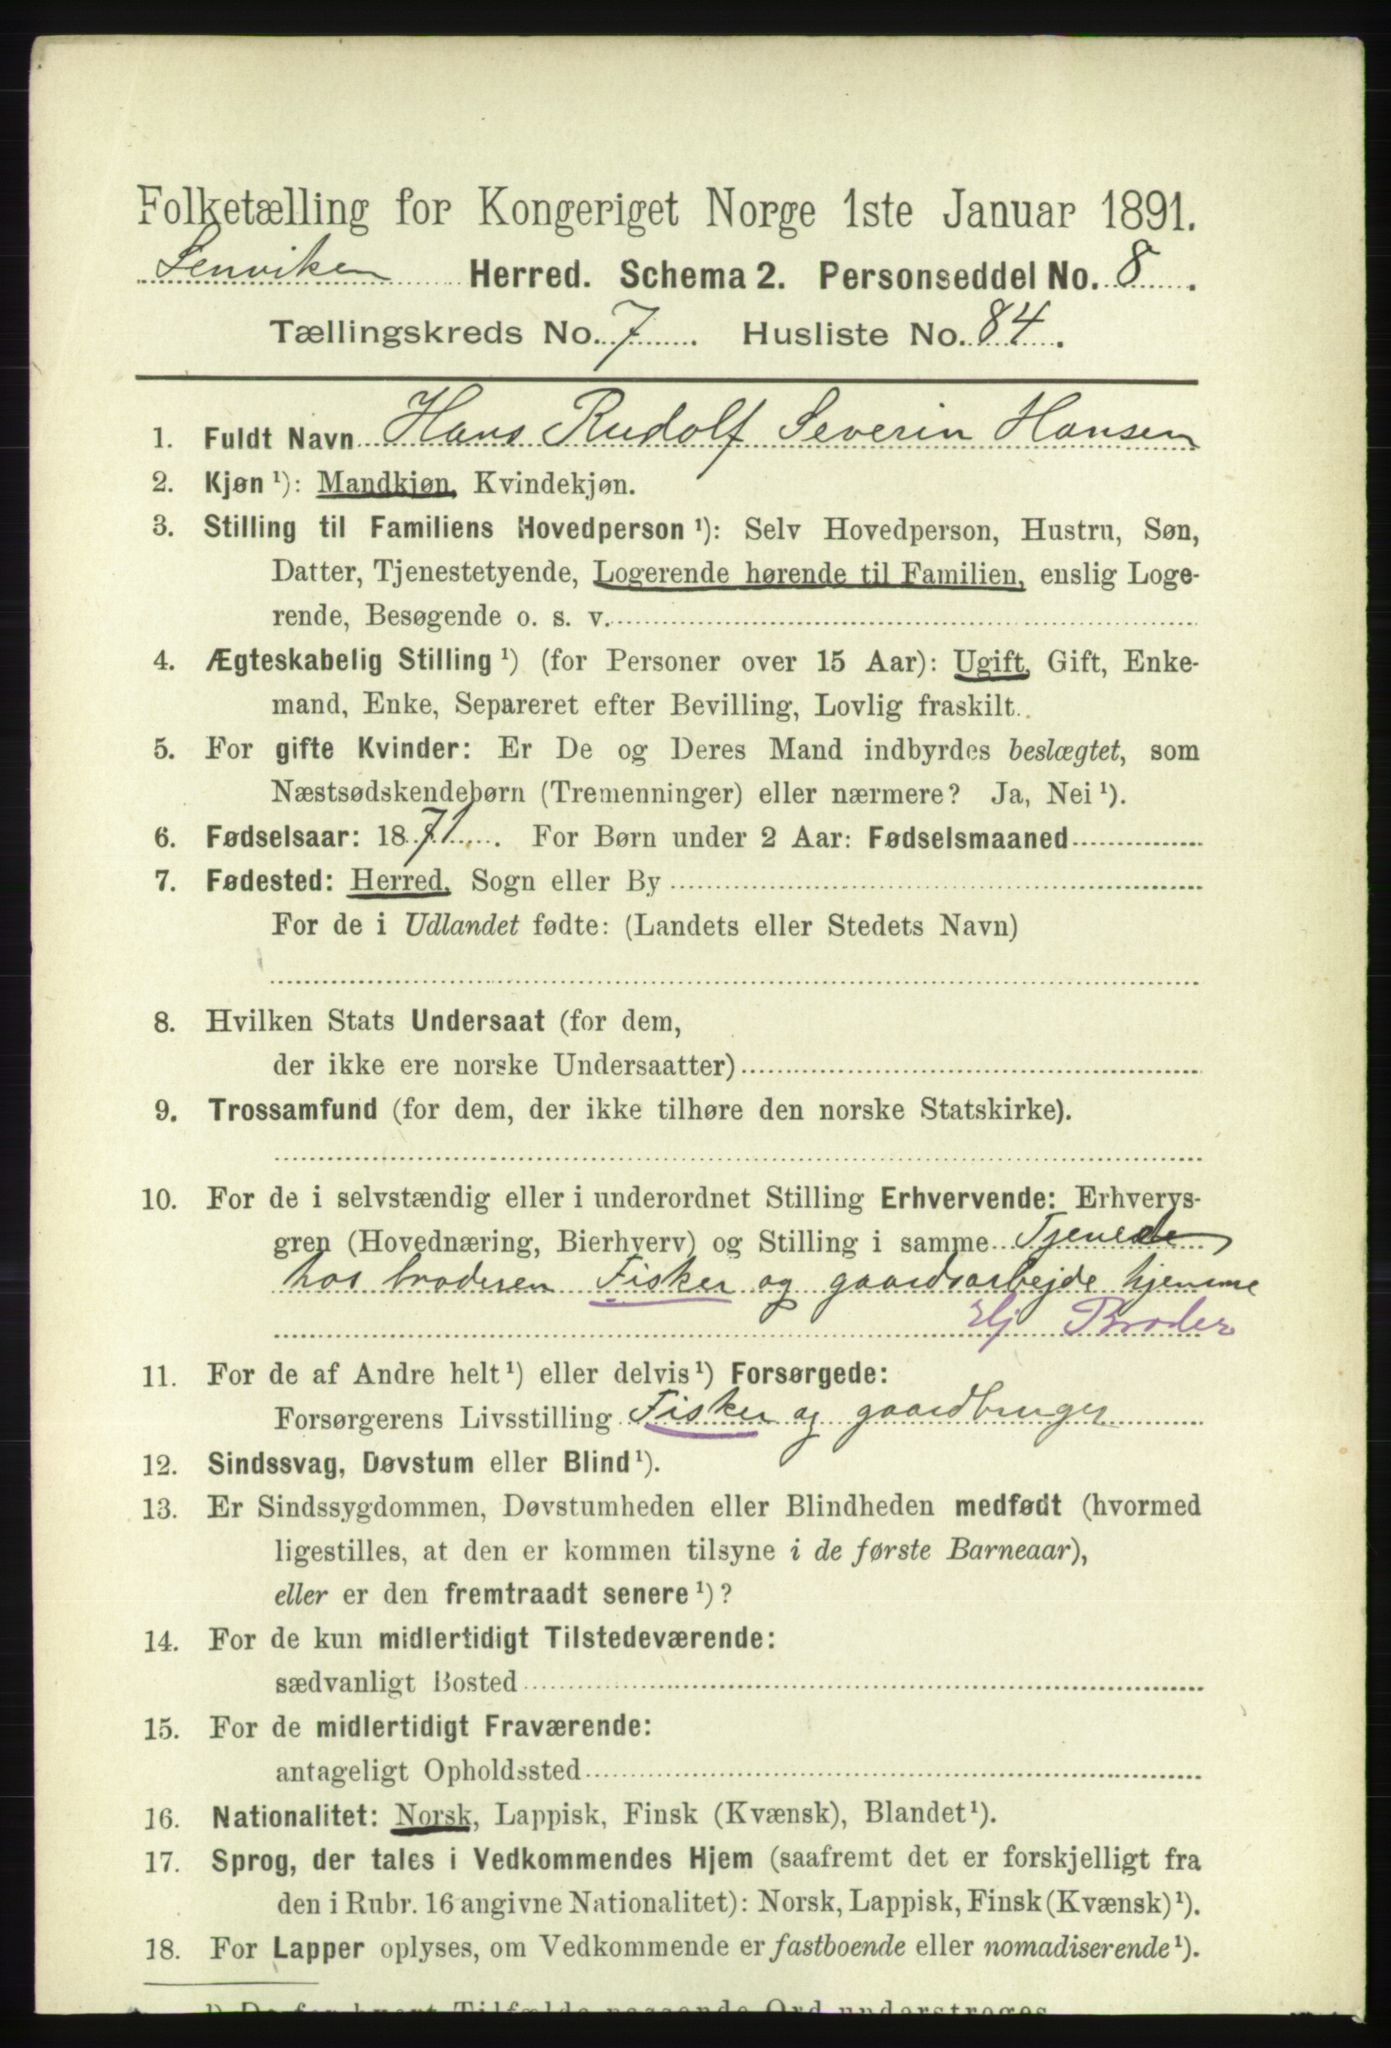 Folketælling for Kongeriget Norge 1ste Januar 1891.
Lenviken Herred. Schema 2. Personseddel No. 8.
Tællingskreds No. 7. Husliste No. 84.
1. Fuldt Navn Hans Rudolf Severin Hansen
2. Kjøn ¹): Mandkjøn, Kvindekjøn.
3. Stilling til Familiens Hovedperson ¹): Selv Hovedperson, Hustru, Søn,
Datter, Tjenestetyende, Logerende hørende til Familien, enslig Loge-
rende, Besøgende o. s. v.
4. Ægteskabelig Stilling ¹) (for Personer over 15 Aar): Ugift, Gift, Enke-
mand, Enke, Separeret efter Bevilling, Lovlig fraskilt.
5. For gifte Kvinder: Er De og Deres Mand indbyrdes beslægtet, som
Næstsødskendebørn (Tremenninger) eller nærmere? Ja, Nei ¹).
6. Fødselsaar: 1871. For Børn under 2 Aar: Fødselsmaaned
7. Fødested: Herred, Sogn eller By
For de i Udlandet fødte: (Landets eller Stedets Navn)
8. Hvilken Stats Undersaat (for dem,
der ikke ere norske Undersaatter)
9. Trossamfund (for dem, der ikke tilhøre den norske Statskirke).
10. For de i selvstændig eller i underordnet Stilling Erhvervende: Erhvervs-
gren (Hovednæring, Bierhverv) og Stilling i samme Tjenede
hos broderen Fisker og gaardsarbejde hjemme
Hj Broder
11. For de af Andre helt ¹) eller delvis ¹) Forsørgede:
Forsørgerens Livsstilling Fisker og gaardbruger
12. Sindssvag, Døvstum eller Blind ¹).
13. Er Sindssygdommen, Døvstumheden eller Blindheden medfødt (hvormed
ligestilles, at den er kommen tilsyne i de første Barneaar),
eller er den fremtraadt senere ¹)?
14. For de kun midlertidigt Tilstedeværende:
sædvanligt Bosted
15. For de midlertidigt Fraværende:
antageligt Opholdssted
16. Nationalitet: Norsk, Lappisk, Finsk (Kvænsk), Blandet ¹).
17. Sprog, der tales i Vedkommendes Hjem (saafremt det er forskjelligt fra
den i Rubr. 16 angivne Nationalitet): Norsk, Lappisk, Finsk (Kvænsk) ¹).
18. For Lapper oplyses, om Vedkommende er fastboende eller nomadiserende ¹).
¹) De for hvert Tilfælde passende Ord understreges.